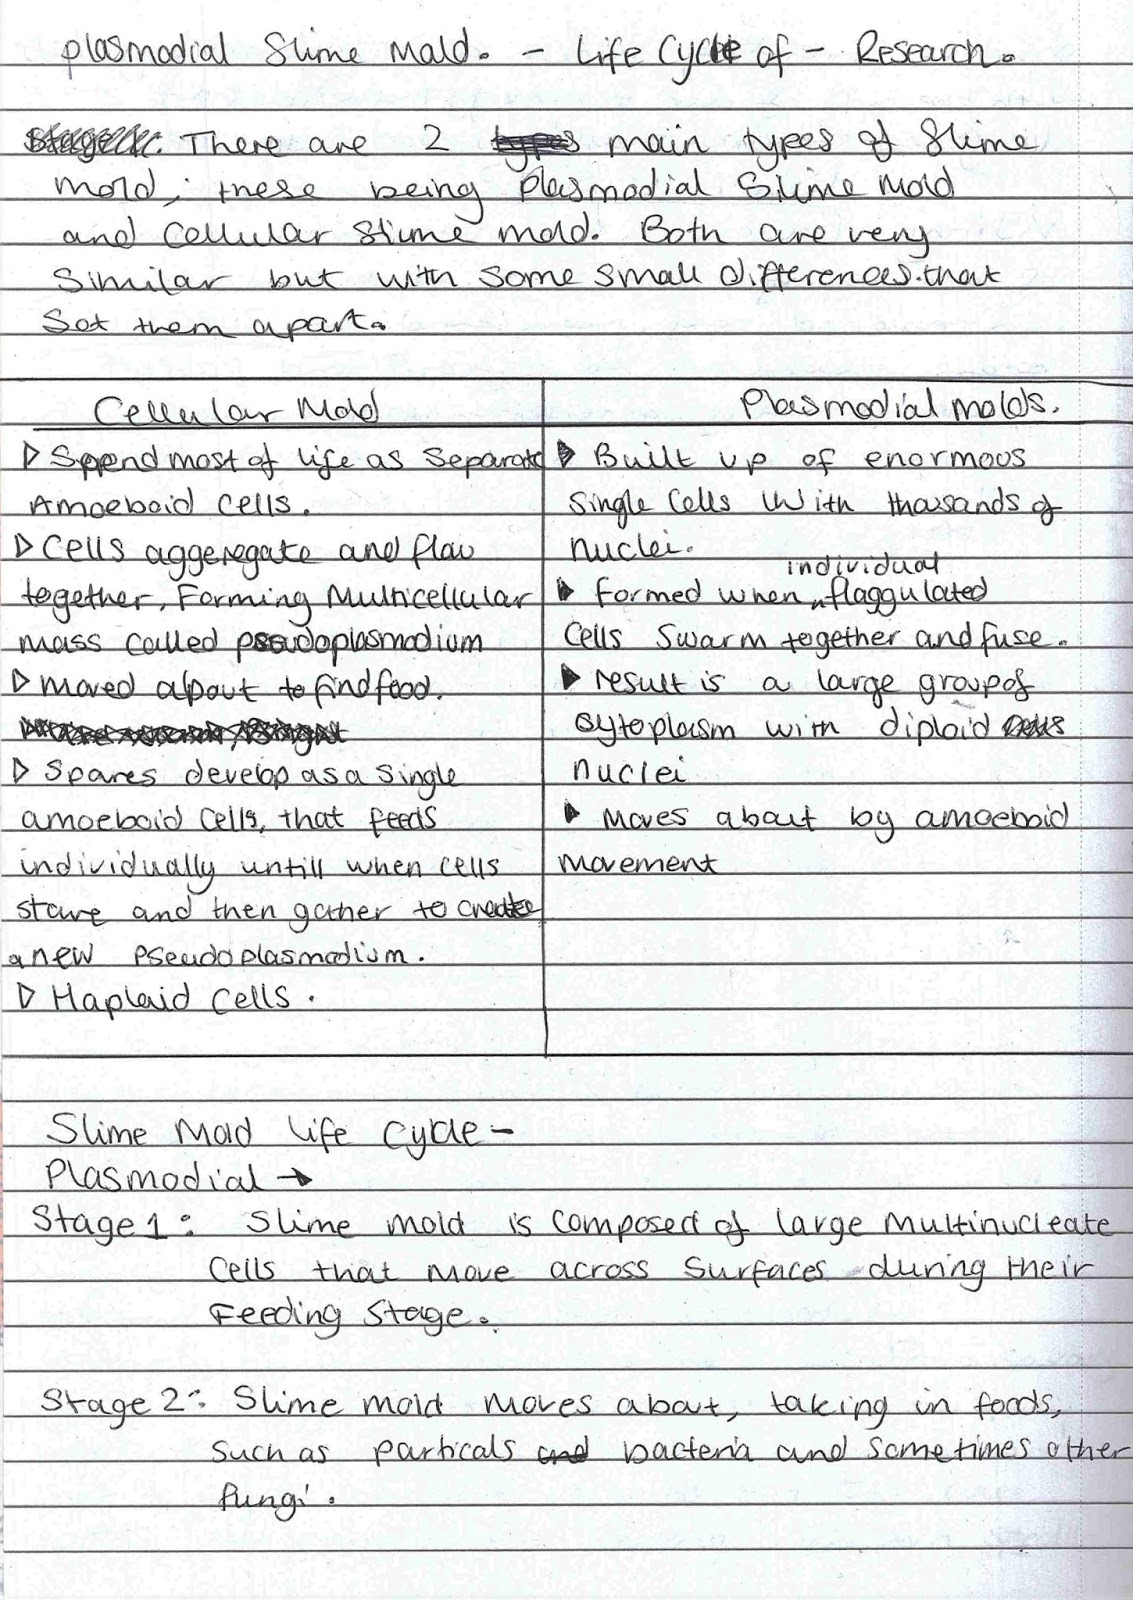 Plasmodial Slime Mold. - Life Cycle of - Research.
There are 2 types main types of Slime
mold, these being Plasmodial Slime Mold
and Cellular Slime mold. Both are very
Similar but with some small differences that
Set them apart.
Cellular Mold
▷ Spend most of life as separate
Amoeboid cells.
▷ Cells aggregate and flow
together, Forming Multicellular
mass called pseudoplasmodium
▷ moved about to find food.
▷ Spores develop as a single
amoeboid cells, that feeds
individually untill when cells
starve and then gather to create
a new Pseudoplasmodium.
▷ Haploid Cells.
Plasmodial molds.
▶ Built up of enormous
single cells with thousands of
nuclei.
individual
▶ formed when flaggulated
cells swarm together and fuse.
▶ result is a large group of
cytoplasm with diploid
nuclei
▶ Moves about by amoeboid
movement
Slime Mold Life Cycle -
Plasmodial →
Stage 1: Slime mold is composed of large multinucleate
cells that move across surfaces during their
Feeding Stage.
Stage 2: Slime mold moves about, taking in foods,
such as particals and bacteria and sometimes other
fungi.